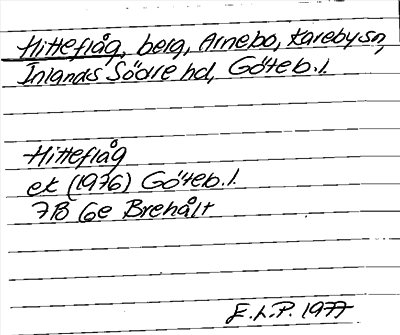 Hitteflåg, berg, Arnebo, Kareby sn,
Inlands Södre hd, Göteb. l.
Hitteflåg
ek (1976) Göteb. l.
7B 6e Brehålt
E. L. P. 1977